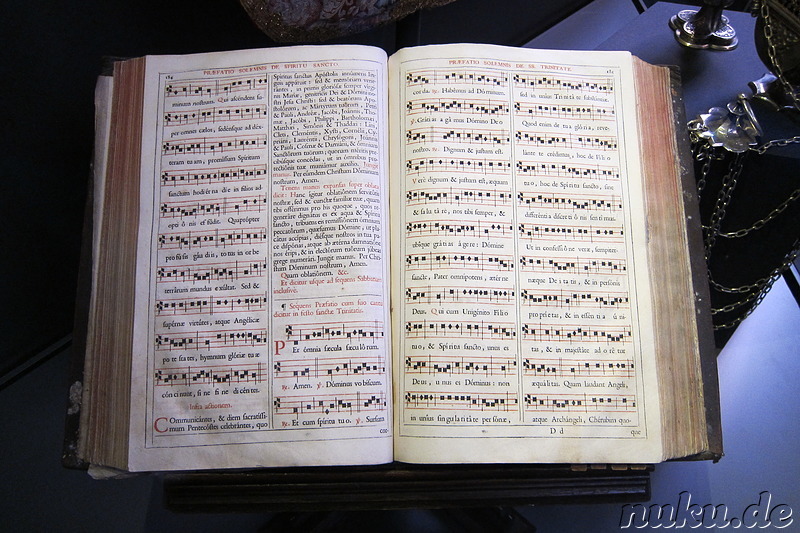 184
PRÆFATIO SOLEMNIS DE SPIRITU SANCTO.
minum nostrum. Qui ascéndens su-
per omnes cælos, sedénsque ad déx-
teram tuam, promíssum Spíritum
sanctum hodiérna die in fílios ad-
opti ó nis effúdit. Quaprópter
profúsis gáudiis, totus in orbe
terrárum mundus exúltat. Sed &
supérnæ virtútes, atque Angélicæ
po te stá tes, hymnum glóriæ tuæ
cóncinunt, si ne fi ne di cén tes.
Infra actionem.
Communicántes, & diem sacratíssi-
mum Pentecóstes celebrántes, quo
Spíritus sanctus Apóstolis innúmeris lin-
guis appáruit: sed & memóriam vene-
rántes, in primis gloriósæ semper vírgi-
nis Maríæ, genitrícis Dei & Dómini no-
stri Jesu Christi: sed & beatórum Apo-
stolórum, ac Mártyrum tuórum, Petri,
& Pauli, Andréæ, Jacóbi, Joánnis, Tho-
mæ, Jacóbi, Philíppi, Bartholomæi,
Matthæi, Simónis & Thaddæi: Lini,
Cleti, Cleméntis, Xysti, Cornélii, Cy-
priáni, Lauréntii, Chrysógoni, Joánnis
& Pauli, Cosmæ & Damiáni, & ómnium
Sanctórum tuórum; quorum méritis pre-
cibúsque concédas, ut in ómnibus pro-
tectiónis tuæ muniámur auxílio. Jungit
manus. Per eúmdem Christum Dóminum
nostrum, Amen.
Tenens manus expansas super oblata,
dicit: Hanc ígitur oblatiónem servitútis
nostræ, sed & cunctæ famíliæ tuæ, quam
tibi offérimus pro his quoque, quos re-
generáre dignátus es ex aqua & Spíritu
sancto, tríbuens eis remissiónem ómnium
peccatórum, quǽsumus Dómine, ut pla-
cátus accípias, diésque nostros in tua pa-
ce dispónas, atque ab ætérna damnatióne
nos éripi, & in electórum tuórum júbeas
grege numerári. Jungit manus. Per Chri-
stum Dóminum nostrum, Amen.
Quam oblatiónem. &c.
Et dicitur usque ad sequens Sabbatum
inclusive.
¶ Sequens Præfatio cum suo cantu
dicitur in festo sanctæ Trinitatis.
Per ómnia sǽcula sæcu ló rum.
℟. Amen. ℣. Dóminus vo bíscum.
℟. Et cum spíritu tu o. ℣. Sursum
cor-
PRÆFATIO SOLEMNIS DE SS. TRINITATE.
185
cor da. ℟. Habémus ad Dóminum.
℣. Grátias a gá mus Dómino De o
nostro. ℟. Dignum & justum est.
Verè dignum & justum est, æquum
& sa lu tá re, nos tibi semper, &
ubíque grátias á ge re: Dómine
sancte, Pater omnípotens, ætérne
Deus. Qui cum Unigénito Fílio
tu o, & Spíritu sancto, unus es
Deus, u nus es Dóminus: non
in uníus singula ri tá te per só næ,
sed in uníus Trini tá te substántiæ.
Quod enim de tu a glória, reve-
lánte te crédimus, hoc de Fílio
tu o, hoc de Spíritu sancto, sine
differéntia discreti ó nis sen tí mus.
Ut in confessi ó ne veræ, sempiter-
næque De i tá tis, & in persónis
propríetas, & in essénti a ú ni-
tas, & in majestáte ad o ré tur
æquálitas. Quam laudant Angeli,
atque Archángeli, Chérubim quo-
D d
que
nuku.de